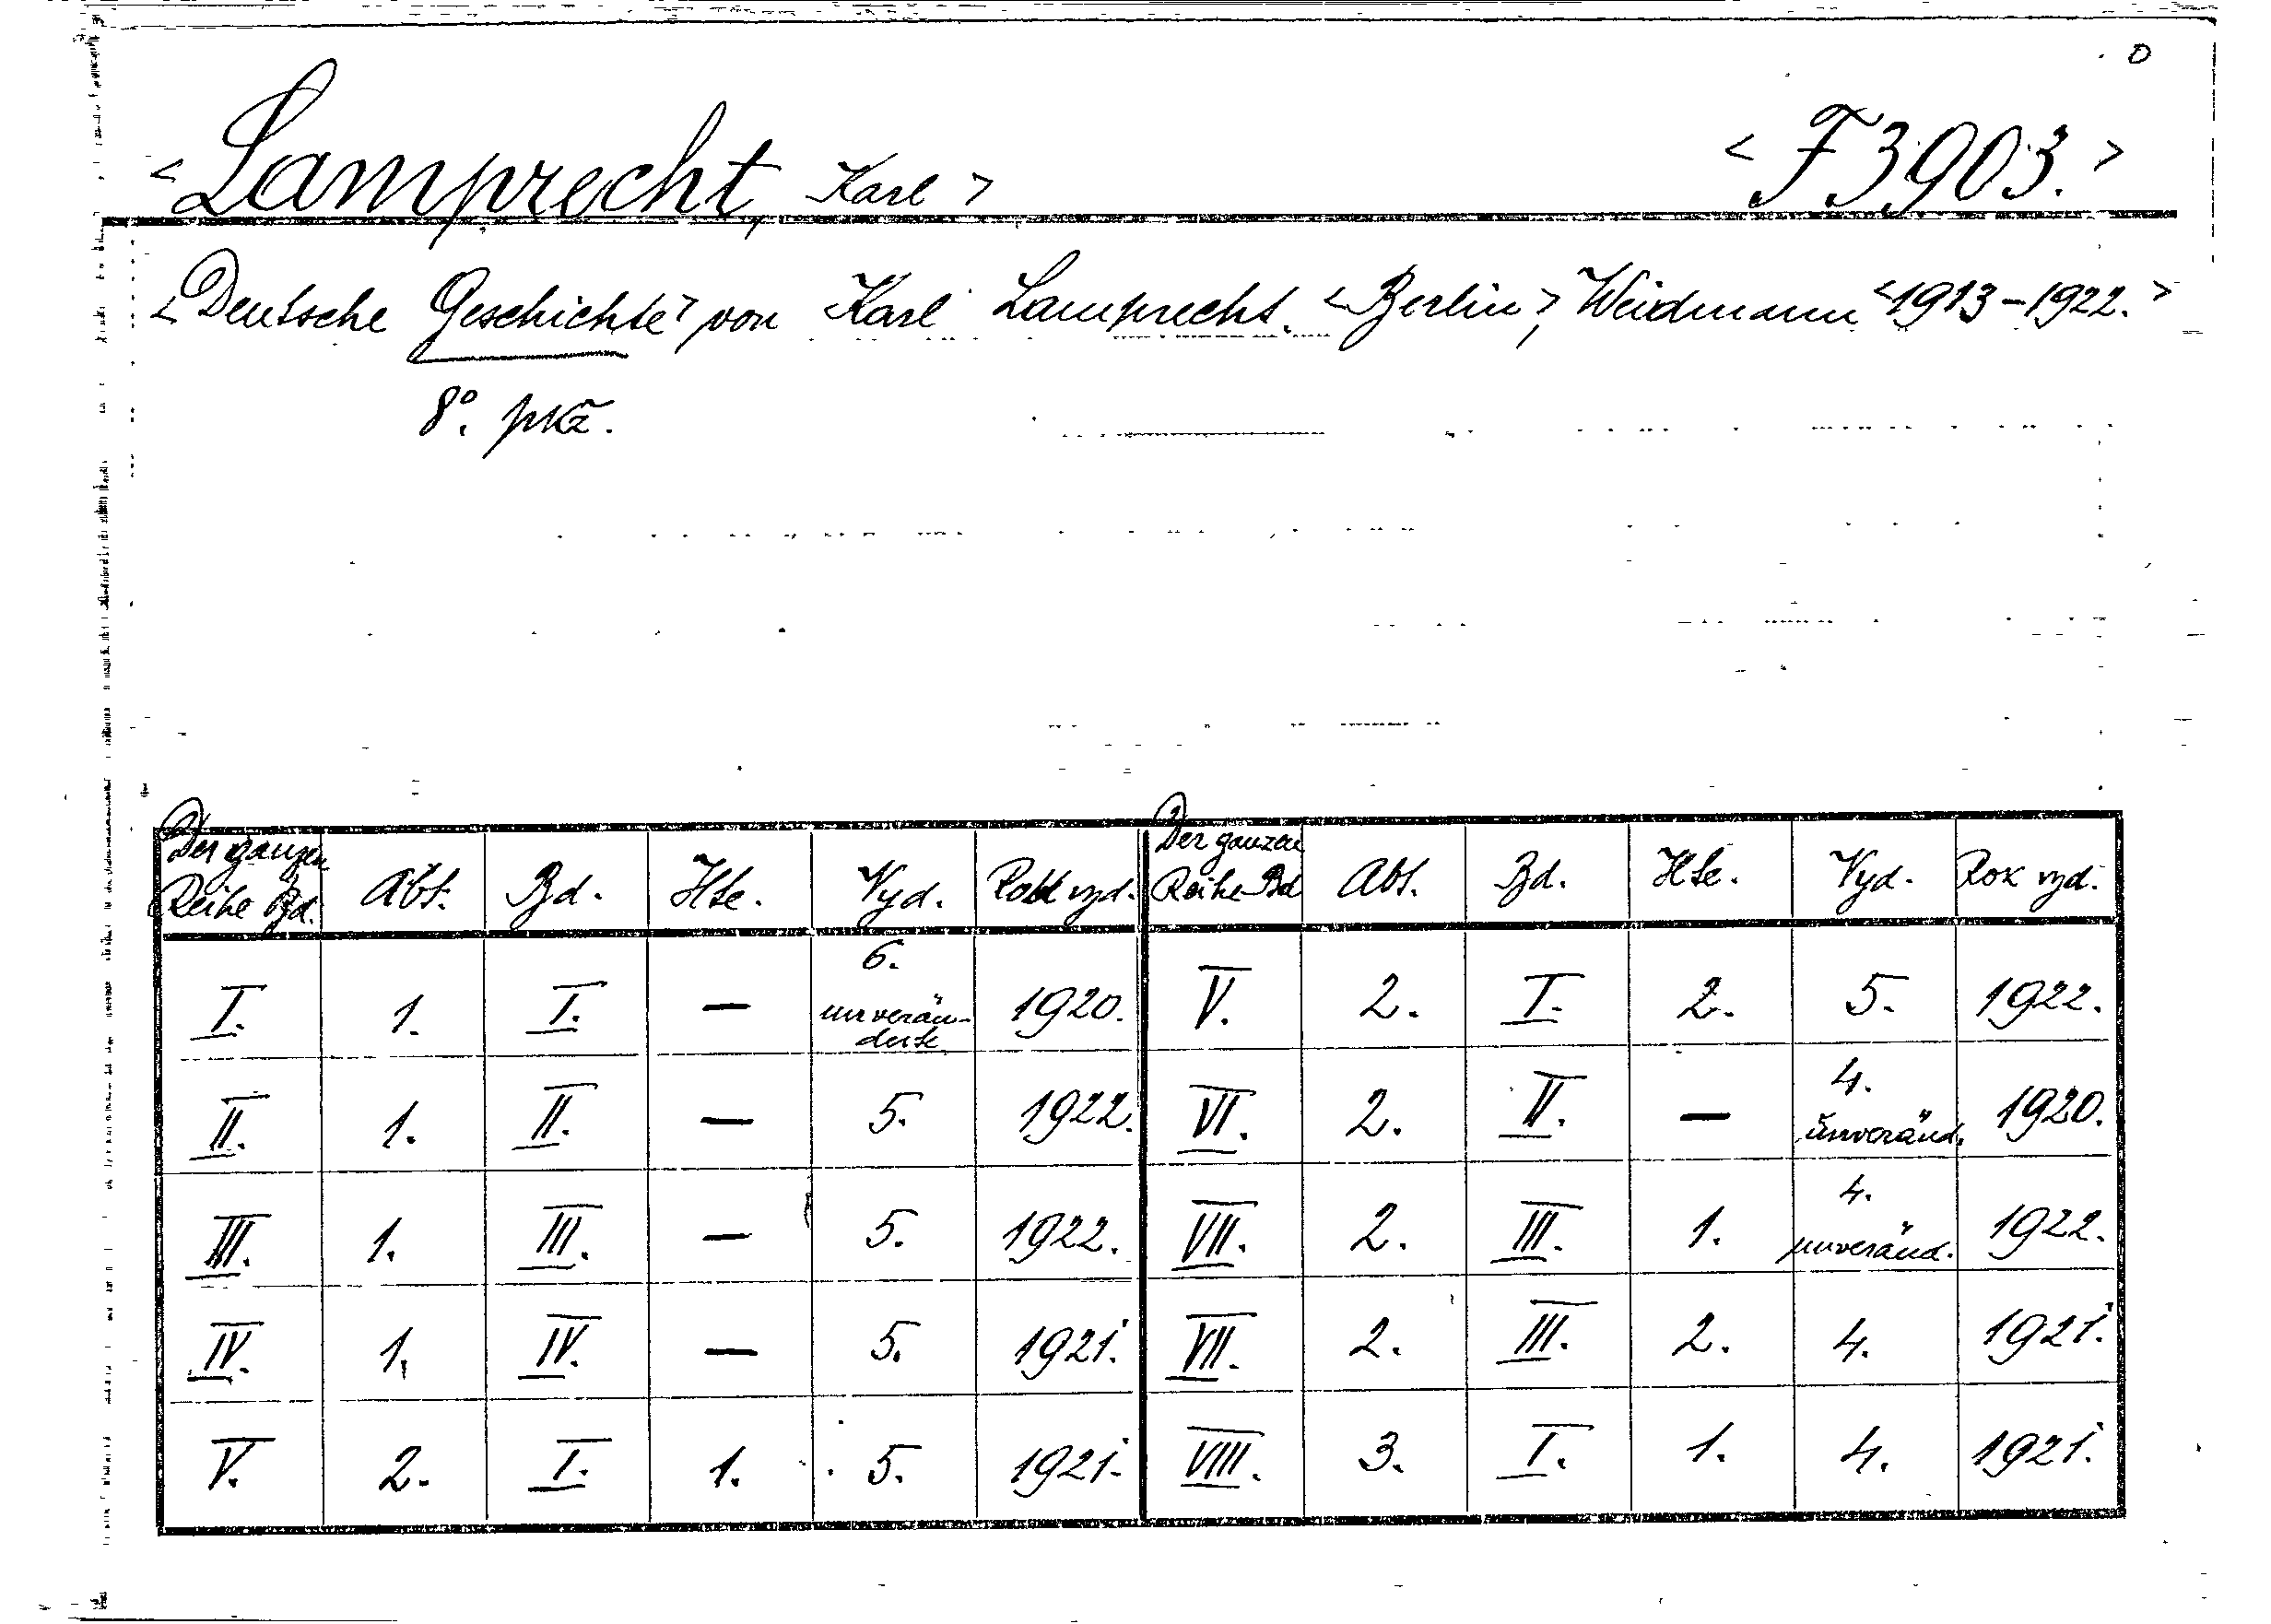 <Lamprecht, Karl> <F 3903.>
<Deutsche Geschichte> von Karl Lamprecht. <Berlin>, Weidmann <1913-1922.>
8°. pkž.
Der ganzen Reihe Bd. Abt. Bd. Hte. Vyd. Rok vyd. Der ganzen Reihe Bd Abt. Bd. Hte. Vyd. Rok vyd.
I. 1. I. — 6. unverän-derte 1920. V. 2. I. 2. 5. 1922.
II. 1. II. — 5. 1922. VI. 2. II. — 4. unveränd. 1920.
III. 1. III. — 5. 1922. VII. 2. III. 1. 4. unveränd. 1922.
IV. 1. IV. — 5. 1921. VII. 2. III. 2. 4. 1921.
V. 2. I. 1. 5. 1921. VIII. 3. I. 1. 4. 1921.